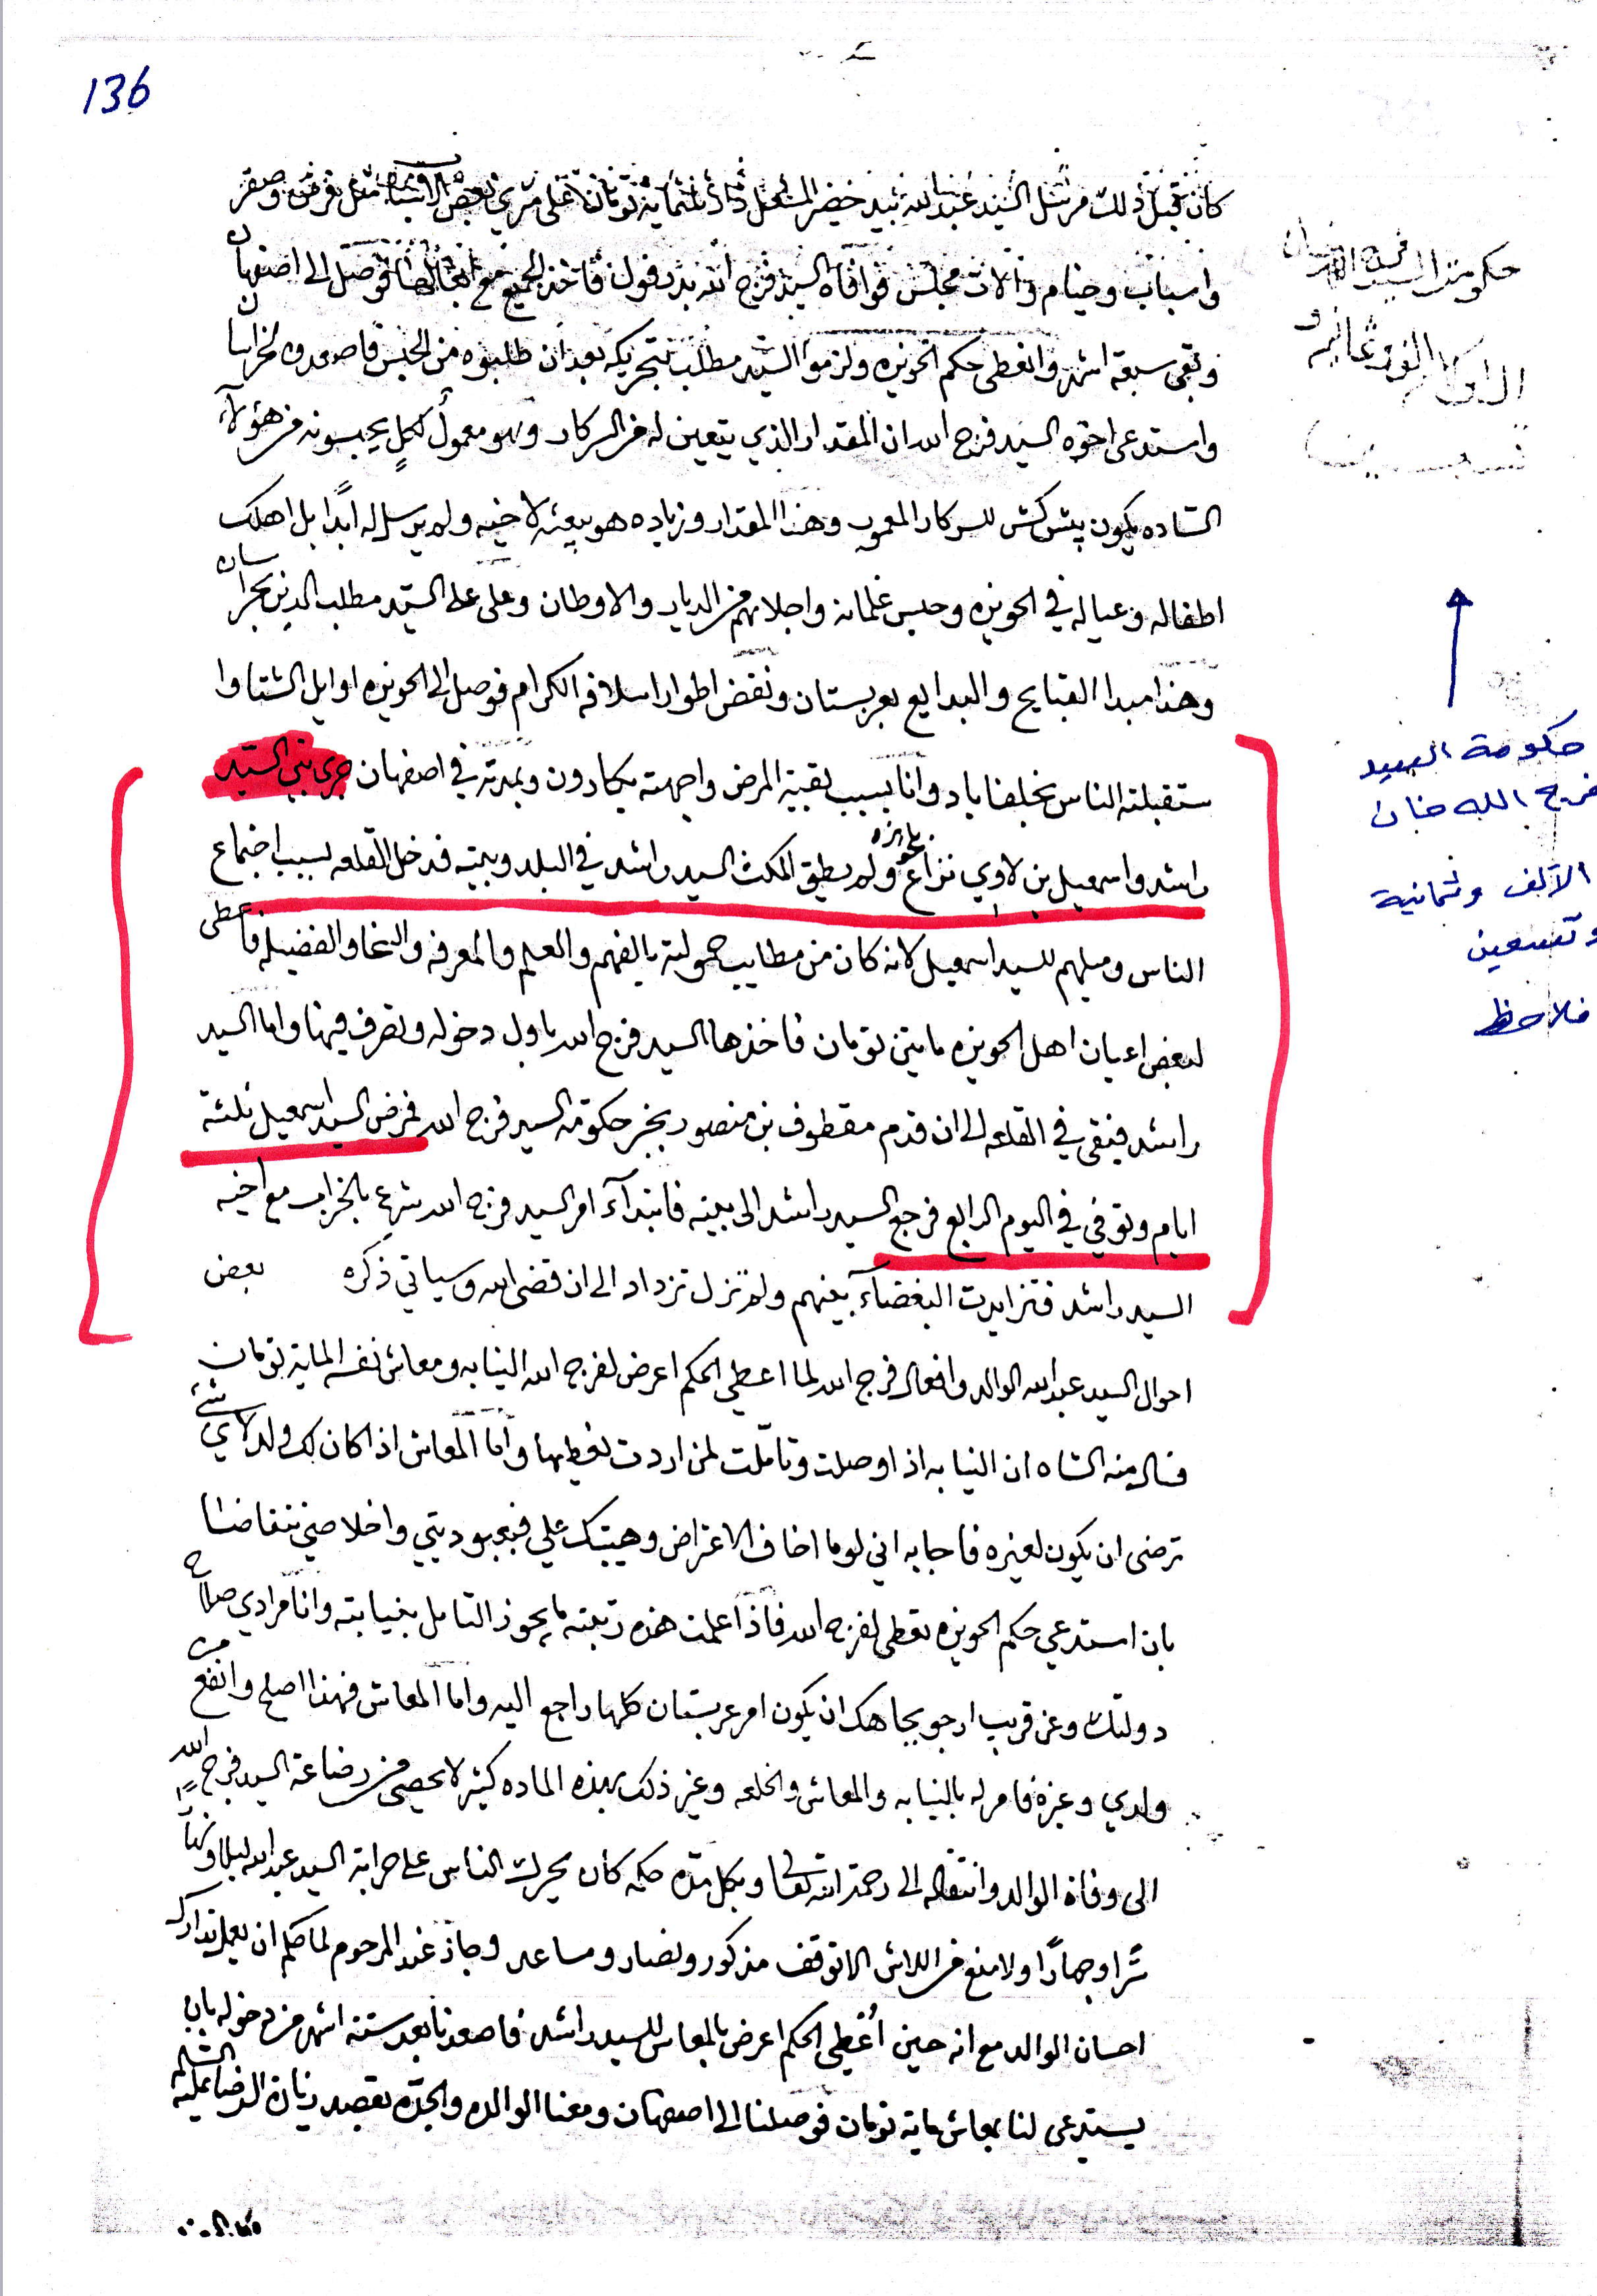 136
كان قبل ذلك مرسل السيد عبدالله بيد خضر ثلثماية تومان على مشري بعض الاشياء مثل فرش وصفر
واسباب وخيام والات مجلس فوافاه السيد فرج الله بدزفول فاخذ الجميع مع فوصل الى اصفهان
وبقى سبعة اشهر وانعطى حكم الحويزه ولزموا السيد مطلب بتحريكه بعد ان طلبوه من الحبس فاصعدوه لخراسان
واستدعى اخوه السيد فرج الله ان المقدار الذي يتعين له من السركار وهو معمول لكل يحبسونه من هؤلآء
الساده يكون پيش كش للسركار المعمور وهذا المقدار وزياده هو يبعثه لاخيه ولم يرسل له ابدًا بل اهلك
اطفاله وعياله في الحويزه وحبس غلمانه واجلاهم من الديار والاوطان وعلى السيد مطلب الذي بخراسان
وهذا مبدا القبايح والبدايع بعربستان ونقض اطوار اسلافه الكرام فوصل الى الحويزه اوايل الشتا وا
ستقبلته الناس بخلفاباد وانا بسبب بقية المرض واجهته بكارون وبمدته في اصفهان جرى بين السيد
راشد واسمعيل بن لاوي نزاع بالحويزه ولم يطق المكث السيد راشد في البلد وبيته فدخل القلعه بسبب اجتماع
الناس وميلهم للسيد اسمعيل لانه كان من مطاييب حمولته بالفهم والعلم والمعرفه والسخا والفضيله فاعطى
لبعض اعيان اهل الحويزه مايتين تومان فاخذها السيد فرج الله باول دخوله وتصرف فيها واما السيد
راشد فبقى في القلعه الى ان قدم مقطوف بن منصور بخبر حكومة السيد فرج الله فمرض السيد اسمعيل ثلثة
ايام وتوفي في اليوم الرابع فرجع السيد راشد الى بيته فابتدآء امر السيد فرج الله شرع بالخراب مع اخيه
السيد راشد فتزايدت البغضآء بينهم ولم تزل تزداد الى ان قضى الله وسياتي ذكره بعض
احوال السيد عبدالله الوالد وافعال فرج الله لما اعطي الحكم اعرض لفرج الله النيابه ومعاش نفسه الماية تومان
فسال منه الشاه ان النيابه اذا وصلت وتاملت لمن اردت تعطيها واما المعاش اذا كان لك ولد لاي شئ
ترضى ان يكون لغيره فاجابه اني لو ما اخاف الاعتراض وهيبتك علي فبعبوديتي واخلاصي تقاضتنا
بان استدعي حكم الحويزه تعطى لفرج الله فاذا علمت هذه رتبته ما يجوز التامل بنيابته وانا مرادي صلاح
دولتك وعن قريب ارجو بجاهك ان يكون امر عربستان كلها راجع اليه واما المعاش فهذا اصلح وانفع من
ولدي وغيره فامر له بالنيابه والمعاش والخلعه وغير ذلك بهذه الماده كثير لا يحصى من رضاعة السيد فرج الله
الى وفاة الوالد وانتقاله الى رحمة الله تعالى وبكل مدة حكمه كان يحرك الناس على حرابة السيد عبدالله ليلا ونهارًا
سرًا وجهارًا ولا منع من اللاش الا توقف مذكور ونصار ومساعد وجاز عند المرحوم لما حكم ان يعمل تدارك
احسان الوالد مع انه حين اُعطي الحكم اعرض بالمعاش للسيد راشد فاصعدنا بعد ستة اشهر من دخوله بان
يستدعى لنا بمعاش ماية تومان فوصلنا الى اصفهان ومعنا الوالده والجده بقصد زيارة الرضا عليه السلام
حكومة السيد فرج الله خان
الالف وثمانيه و
تسعين
حكومة السيد
فرج الله خان
الألف وثمانية
وتسعين
فلاحظ